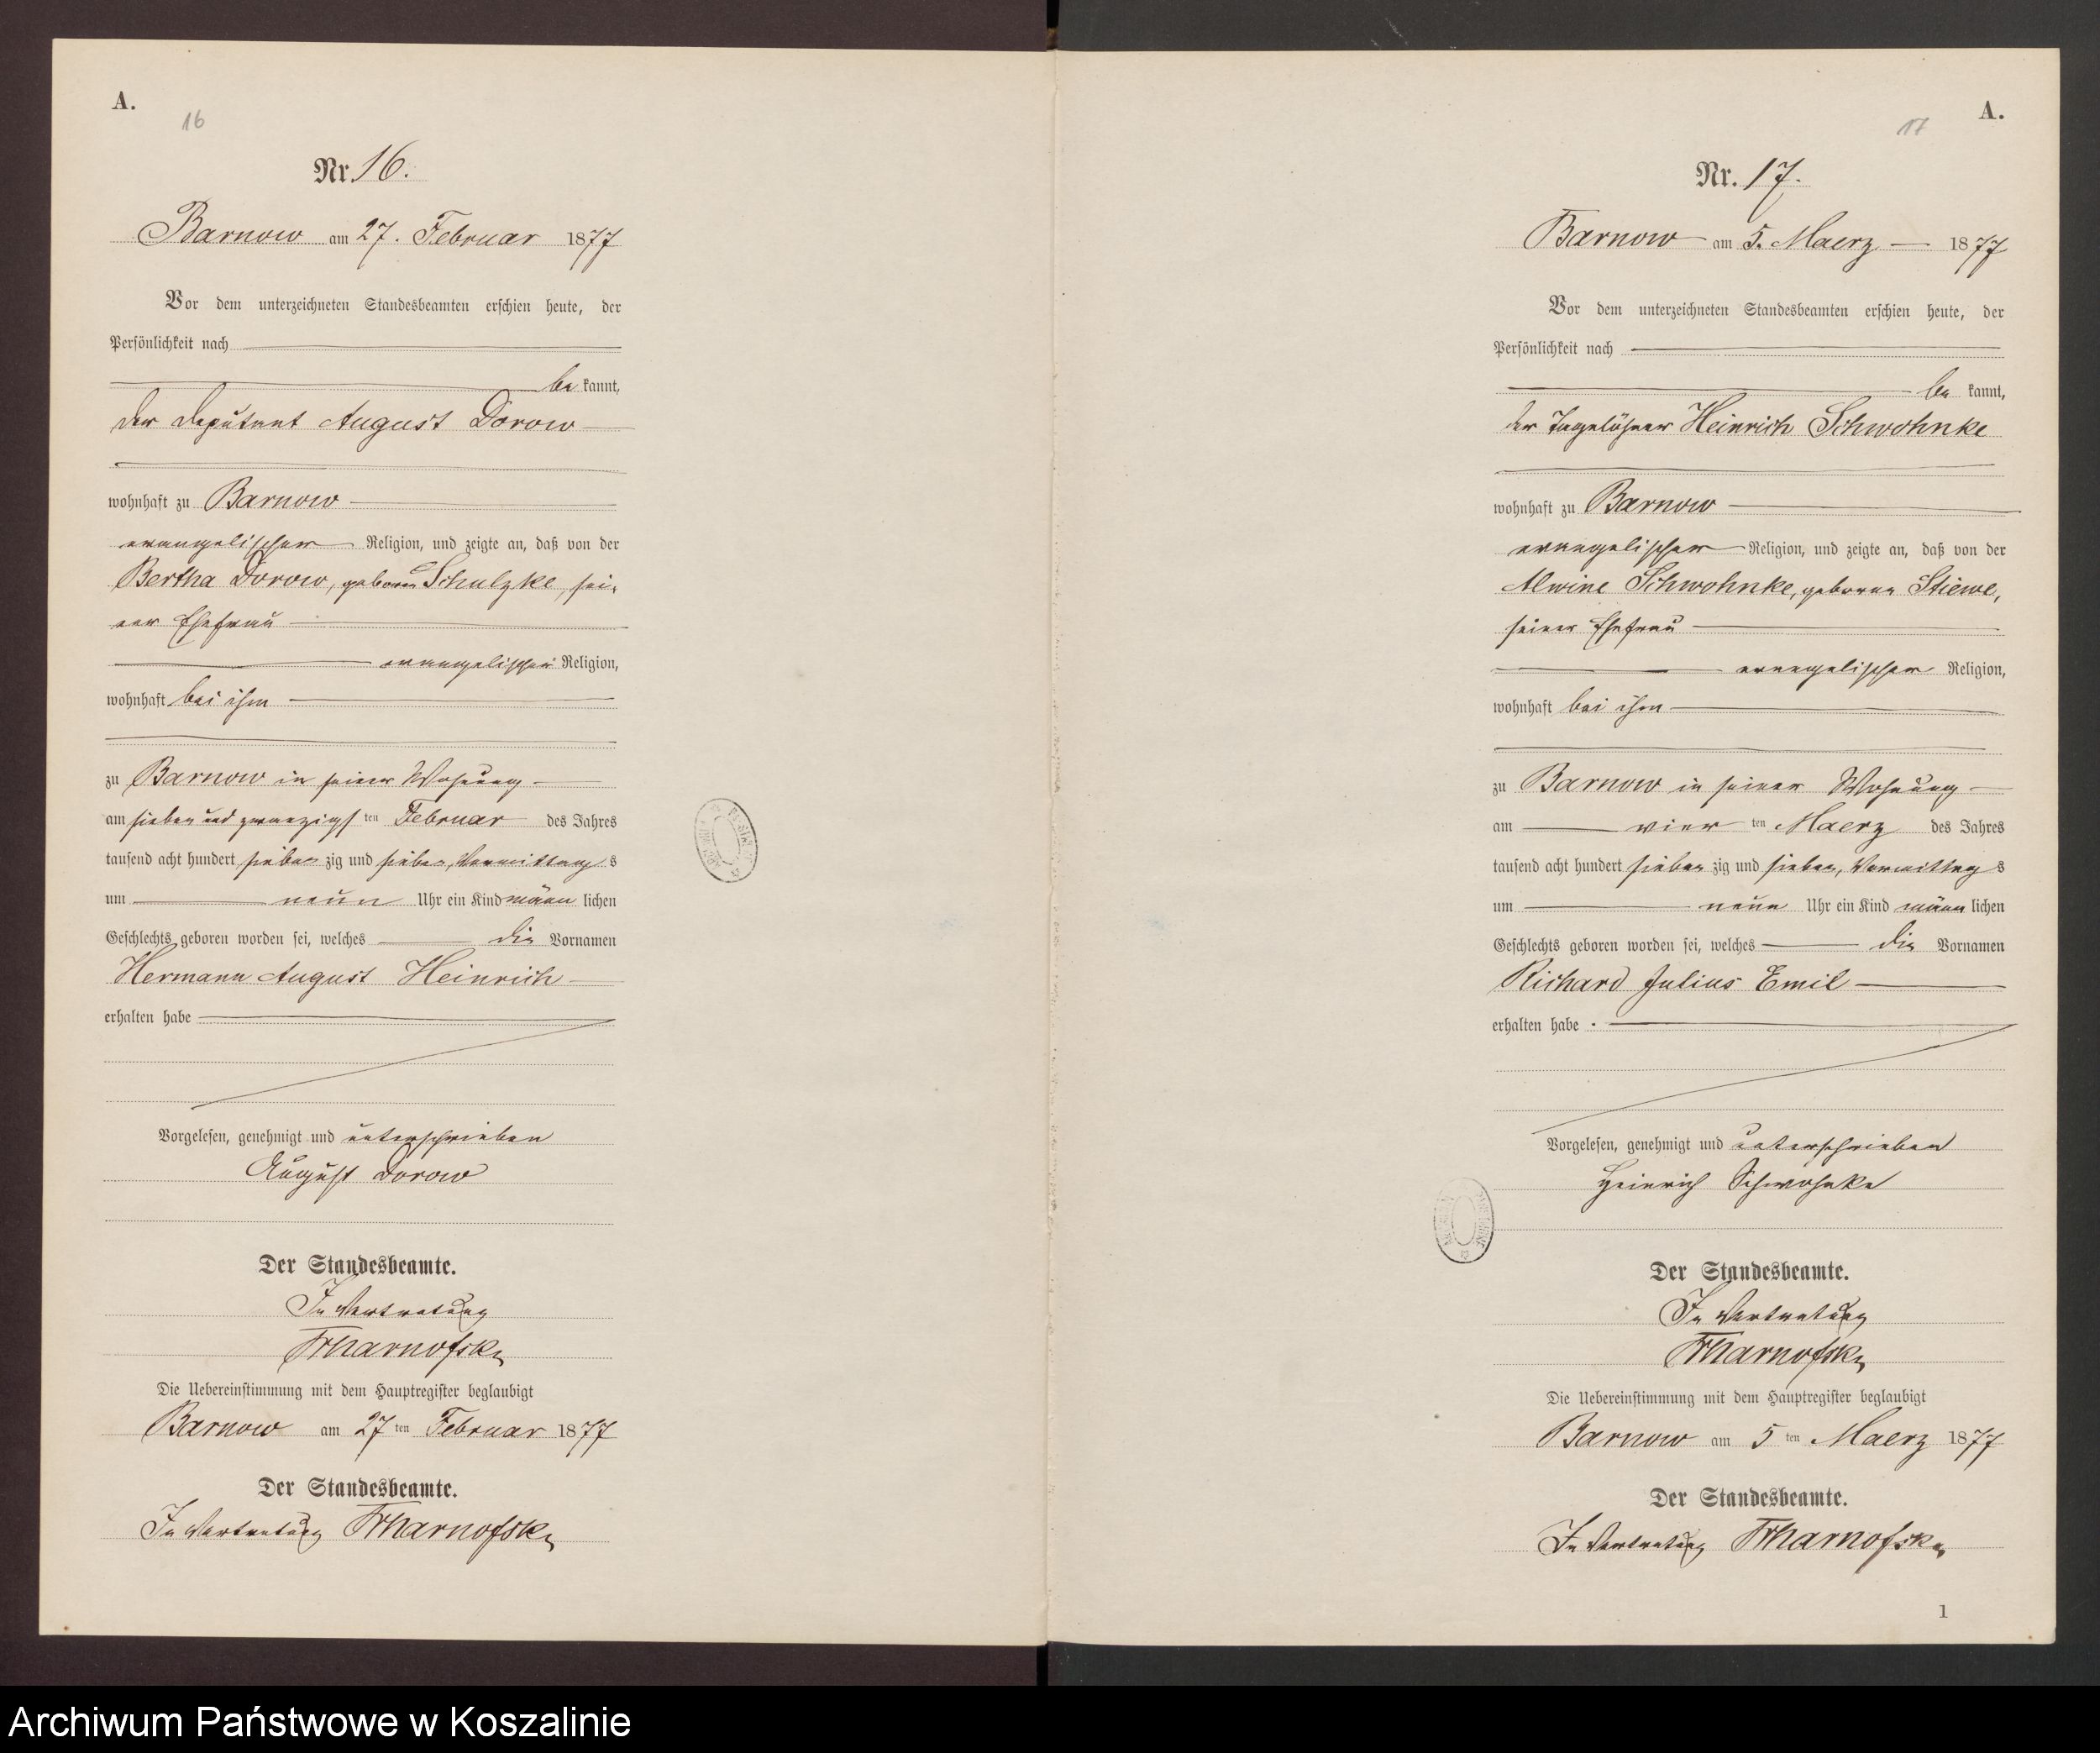 A.
16
Nr. 16.
Barnow am 27. Februar 1877
Vor dem unterzeichneten Standesbeamten erschien heute, der
Persönlichkeit nach
be kannt,
der Deputant August Dorow
wohnhaft zu Barnow
evangelischer Religion, und zeigte an, daß von der
Bertha Dorow, geborne Schulzke, sei-
ner Ehefrau
evangelischer Religion,
wohnhaft bei ihm
zu Barnow in seiner Wohnung
am sieben und zwanzigs ten Februar des Jahres
tausend acht hundert sieben zig und sieben, Vormittag s
um neun Uhr ein Kind männ lichen
Geschlechts geboren worden sei, welches die Vornamen
Hermann August Heinrich
erhalten habe
Vorgelesen, genehmigt und unterschrieben
August Dorow
Der Standesbeamte.
In Vertretung
Die Uebereinstimmung mit dem Hauptregister beglaubigt
Barnow am 27 ten Februar 1877
Der Standesbeamte.
In Vertretung
A.
17
Nr. 17.
Barnow am 5. Maerz 1877
Vor dem unterzeichneten Standesbeamten erschien heute, der
Persönlichkeit nach
be kannt,
der Tagelöhner Heinrich Schwohnke
wohnhaft zu Barnow
evangelischer Religion, und zeigte an, daß von der
Alwine Schwohnke, geborne Stiewe,
seiner Ehefrau
evangelischer Religion,
wohnhaft bei ihm
zu Barnow in seiner Wohnung
am vier ten Maerz des Jahres
tausend acht hundert sieben zig und sieben, Vormittag s
um neun Uhr ein Kind männ lichen
Geschlechts geboren worden sei, welches die Vornamen
Richard Julius Emil
erhalten habe .
Vorgelesen, genehmigt und unterschrieben
Heinrich Schwohnke
Der Standesbeamte.
In Vertretung
Die Uebereinstimmung mit dem Hauptregister beglaubigt
Barnow am 5 ten Maerz 1877
Der Standesbeamte.
In Vertretung
1
Archiwum Państwowe w Koszalinie